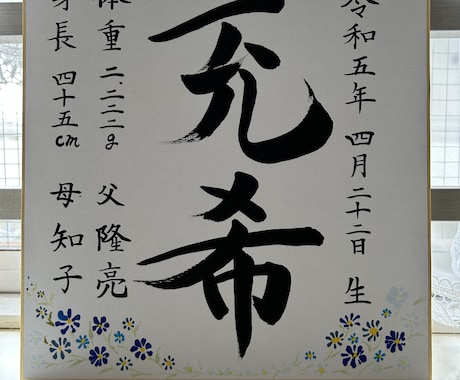 令和五年 四月二十二日 生
充希
体重 二.二二二g 父 隆亮
身長 四十五cm 母 知子